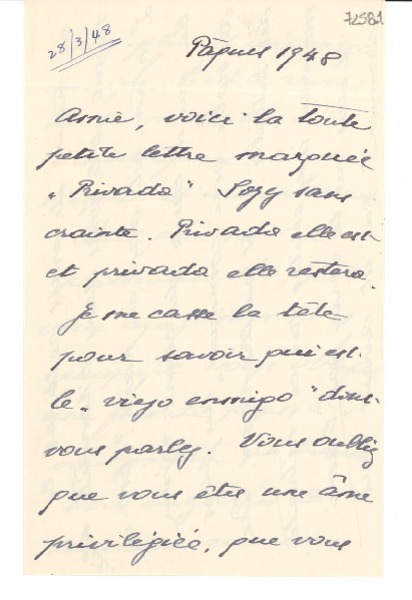 72581
28/3/48
Pâques 1948
Amie, voici la toute
petite lettre marquée
"Privada" Soyez sans
crainte. Privada elle est
et privada elle restera.
Je me casse la tête
pour savoir qui est
le "viejo enmigo" dont
vous parlez. Vous oubliez
que vous êtes une âme
privilégiée, que vous